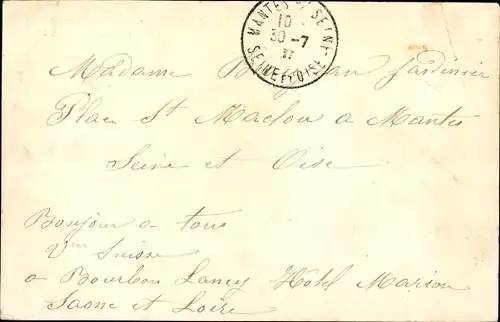 MANTES S SEINE
10
30 -7
SEINE ET OISE
Madame jardinier
Place St Maclou a Mantes
Seine et Oise
Bonjour a tous
Vve Suisse
a Bourbon Lancy Hotel Marion
Saone et Loire